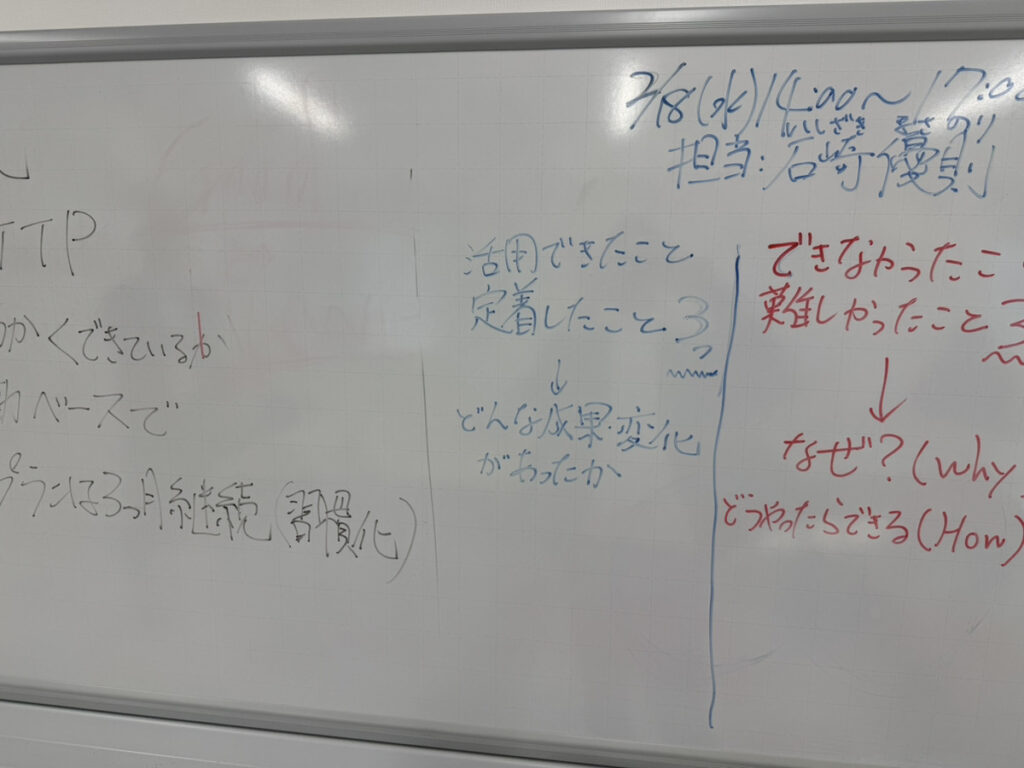 2/18(水)14:00～17:00
いしざき まさのり
担当:石崎優則
TTP
かくできているか
ベースで
プランは3ヵ月継続(習慣化)
活用できたこと
定着したこと 3つ
↓
どんな成果・変化
があったか
できなかったこ
難しかったこと 3
↓
なぜ?(Why
どうやったらできる(How)